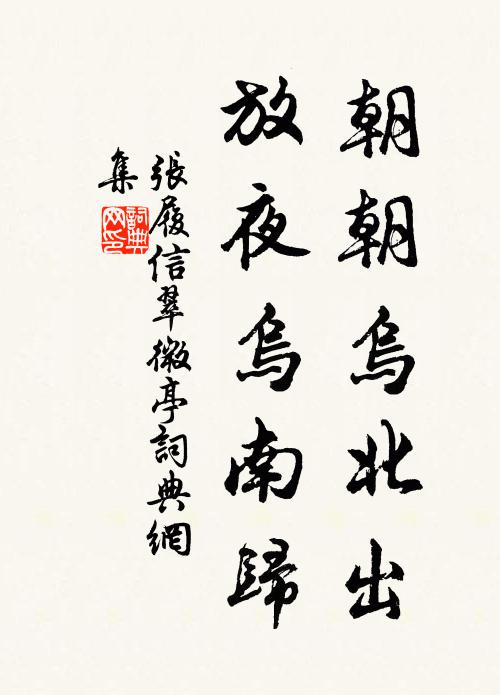 朝朝烏北出
放夜烏南歸
張履信翠微亭詞典網
集
詞典网印